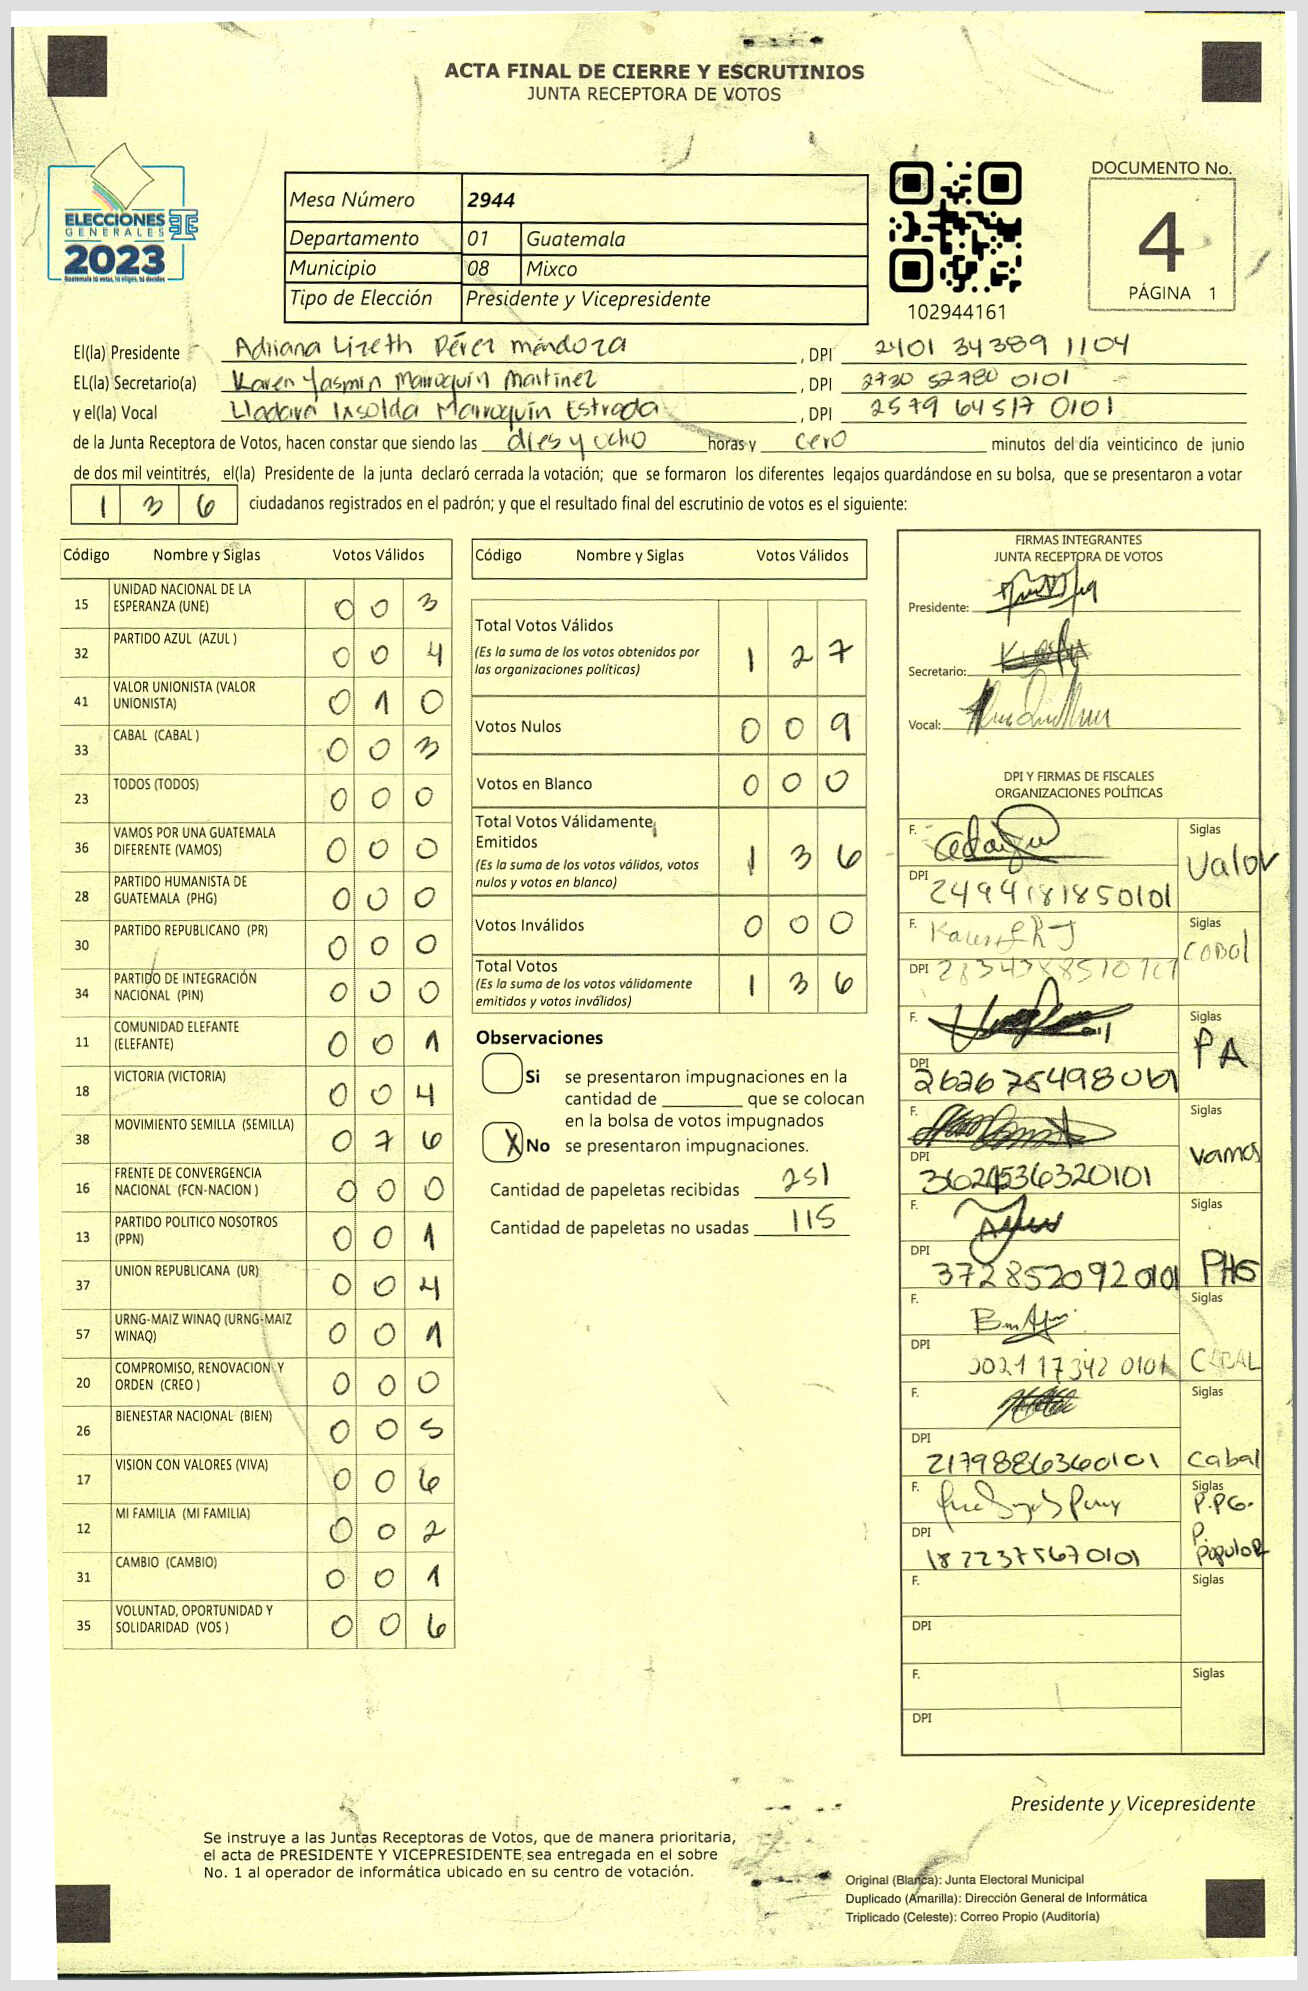 ACTA FINAL DE CIERRE Y ESCRUTINIOS
JUNTA RECEPTORA DE VOTOS
ELECCIONES
GENERALES
2023
Guatemala tú votas, tú eliges, tú decides
Mesa Número 2944
Departamento 01 Guatemala
Municipio 08 Mixco
Tipo de Elección Presidente y Vicepresidente
102944161
DOCUMENTO No.
4
PÁGINA 1
El(la) Presidente Adriana Lizeth Pérez Mendoza , DPI 2401 34389 1104
EL(la) Secretario(a) Karen Yasmin Marroquín Martínez , DPI 2730 52780 0101
y el(la) Vocal Marroquín Estrada , DPI 2579 64517 0101
de la Junta Receptora de Votos, hacen constar que siendo las dies y ocho horas y cero minutos del día veinticinco de junio
de dos mil veintitrés, el(la) Presidente de la junta declaró cerrada la votación; que se formaron los diferentes legajos guardándose en su bolsa, que se presentaron a votar
1 3 6 ciudadanos registrados en el padrón; y que el resultado final del escrutinio de votos es el siguiente:
Código Nombre y Siglas Votos Válidos
15 UNIDAD NACIONAL DE LA ESPERANZA (UNE) 0 0 3
32 PARTIDO AZUL (AZUL ) 0 0 4
41 VALOR UNIONISTA (VALOR UNIONISTA) 0 1 0
33 CABAL (CABAL ) 0 0 3
23 TODOS (TODOS) 0 0 0
36 VAMOS POR UNA GUATEMALA DIFERENTE (VAMOS) 0 0 0
28 PARTIDO HUMANISTA DE GUATEMALA (PHG) 0 0 0
30 PARTIDO REPUBLICANO (PR) 0 0 0
34 PARTIDO DE INTEGRACIÓN NACIONAL (PIN) 0 0 0
11 COMUNIDAD ELEFANTE (ELEFANTE) 0 0 1
18 VICTORIA (VICTORIA) 0 0 4
38 MOVIMIENTO SEMILLA (SEMILLA) 0 7 6
16 FRENTE DE CONVERGENCIA NACIONAL (FCN-NACION ) 0 0 0
13 PARTIDO POLITICO NOSOTROS (PPN) 0 0 1
37 UNION REPUBLICANA (UR) 0 0 4
57 URNG-MAIZ WINAQ (URNG-MAIZ WINAQ) 0 0 1
20 COMPROMISO, RENOVACION Y ORDEN (CREO ) 0 0 0
26 BIENESTAR NACIONAL (BIEN) 0 0 5
17 VISION CON VALORES (VIVA) 0 0 6
12 MI FAMILIA (MI FAMILIA) 0 0 2
31 CAMBIO (CAMBIO) 0 0 1
35 VOLUNTAD, OPORTUNIDAD Y SOLIDARIDAD (VOS ) 0 0 6
Código Nombre y Siglas Votos Válidos
Total Votos Válidos
(Es la suma de los votos obtenidos por las organizaciones políticas) 1 2 7
Votos Nulos 0 0 9
Votos en Blanco 0 0 0
Total Votos Válidamente Emitidos
(Es la suma de los votos válidos, votos nulos y votos en blanco) 1 3 6
Votos Inválidos 0 0 0
Total Votos
(Es la suma de los votos válidamente emitidos y votos inválidos) 1 3 6
Observaciones
Si se presentaron impugnaciones en la
cantidad de ________ que se colocan
en la bolsa de votos impugnados
X No se presentaron impugnaciones.
Cantidad de papeletas recibidas 251
Cantidad de papeletas no usadas 115
FIRMAS INTEGRANTES
JUNTA RECEPTORA DE VOTOS
Presidente:
Secretario:
Vocal:
DPI Y FIRMAS DE FISCALES
ORGANIZACIONES POLÍTICAS
F. Siglas Valor
DPI 2494181850101
F. Siglas CABAL
DPI
F. Siglas PA
DPI
F. Siglas Vamos
DPI 36024536320101
F. Siglas PHG
DPI 372852092 0101
F. Siglas CABAL
DPI 0101
F. Siglas Cabal
DPI 2179886360101
F. Siglas P.PG. P. Popular
DPI 1822375670101
F. Siglas
DPI
F. Siglas
DPI
Presidente y Vicepresidente
Se instruye a las Juntas Receptoras de Votos, que de manera prioritaria,
el acta de PRESIDENTE Y VICEPRESIDENTE sea entregada en el sobre
No. 1 al operador de informática ubicado en su centro de votación.
Original (Blanca): Junta Electoral Municipal
Duplicado (Amarilla): Dirección General de Informática
Triplicado (Celeste): Correo Propio (Auditoría)